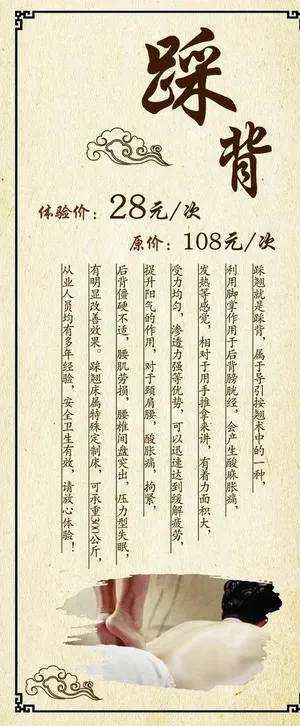 踩背
体验价：28元/次
原价：108元/次
踩翘就是踩背，属于导引按翘术中的一种，
利用脚掌作用于后背膀胱经，会产生酸麻胀痛，
发热等感觉，相对于用手推拿来讲，有着力面积大，
受力均匀，渗透力强等优势，可以迅速达到缓解疲劳，
提升阳气的作用，对于颈肩腰，酸胀痛，拘紧，
后背僵硬不适，腰肌劳损，腰椎间盘突出，压力型失眠，
有明显改善效果。踩翘床属特殊定制床，可承重300公斤，
从业人员均有多年经验，安全卫生有效，请放心体验！